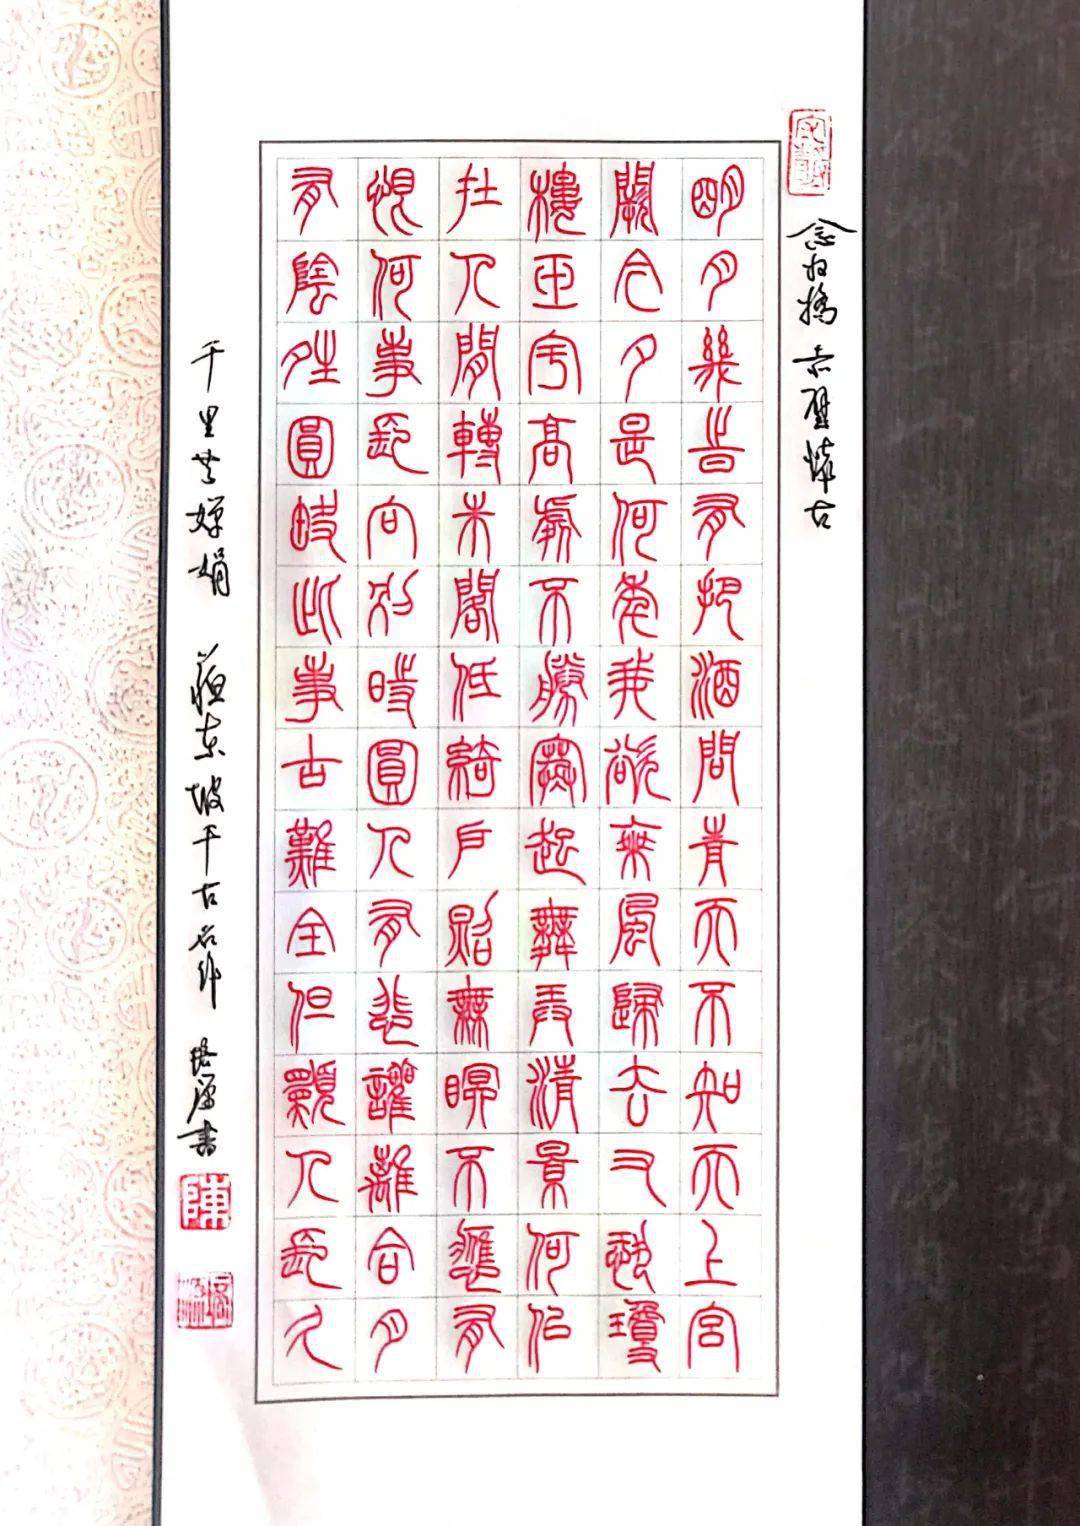 念奴嬌 赤壁懷古
明月幾時有把酒問青天不知天上宮
闕今夕是何年我欲乘風歸去又恐瓊
樓玉宇高處不勝寒起舞弄清景何似
在人間轉朱閣低綺戶照無眠不應有
恨何事長向別時圓人有悲讙離合月
有陰晴圓缺此事古難全但願人長久
千里共嬋娟 蘇東坡千古名作 書
陳